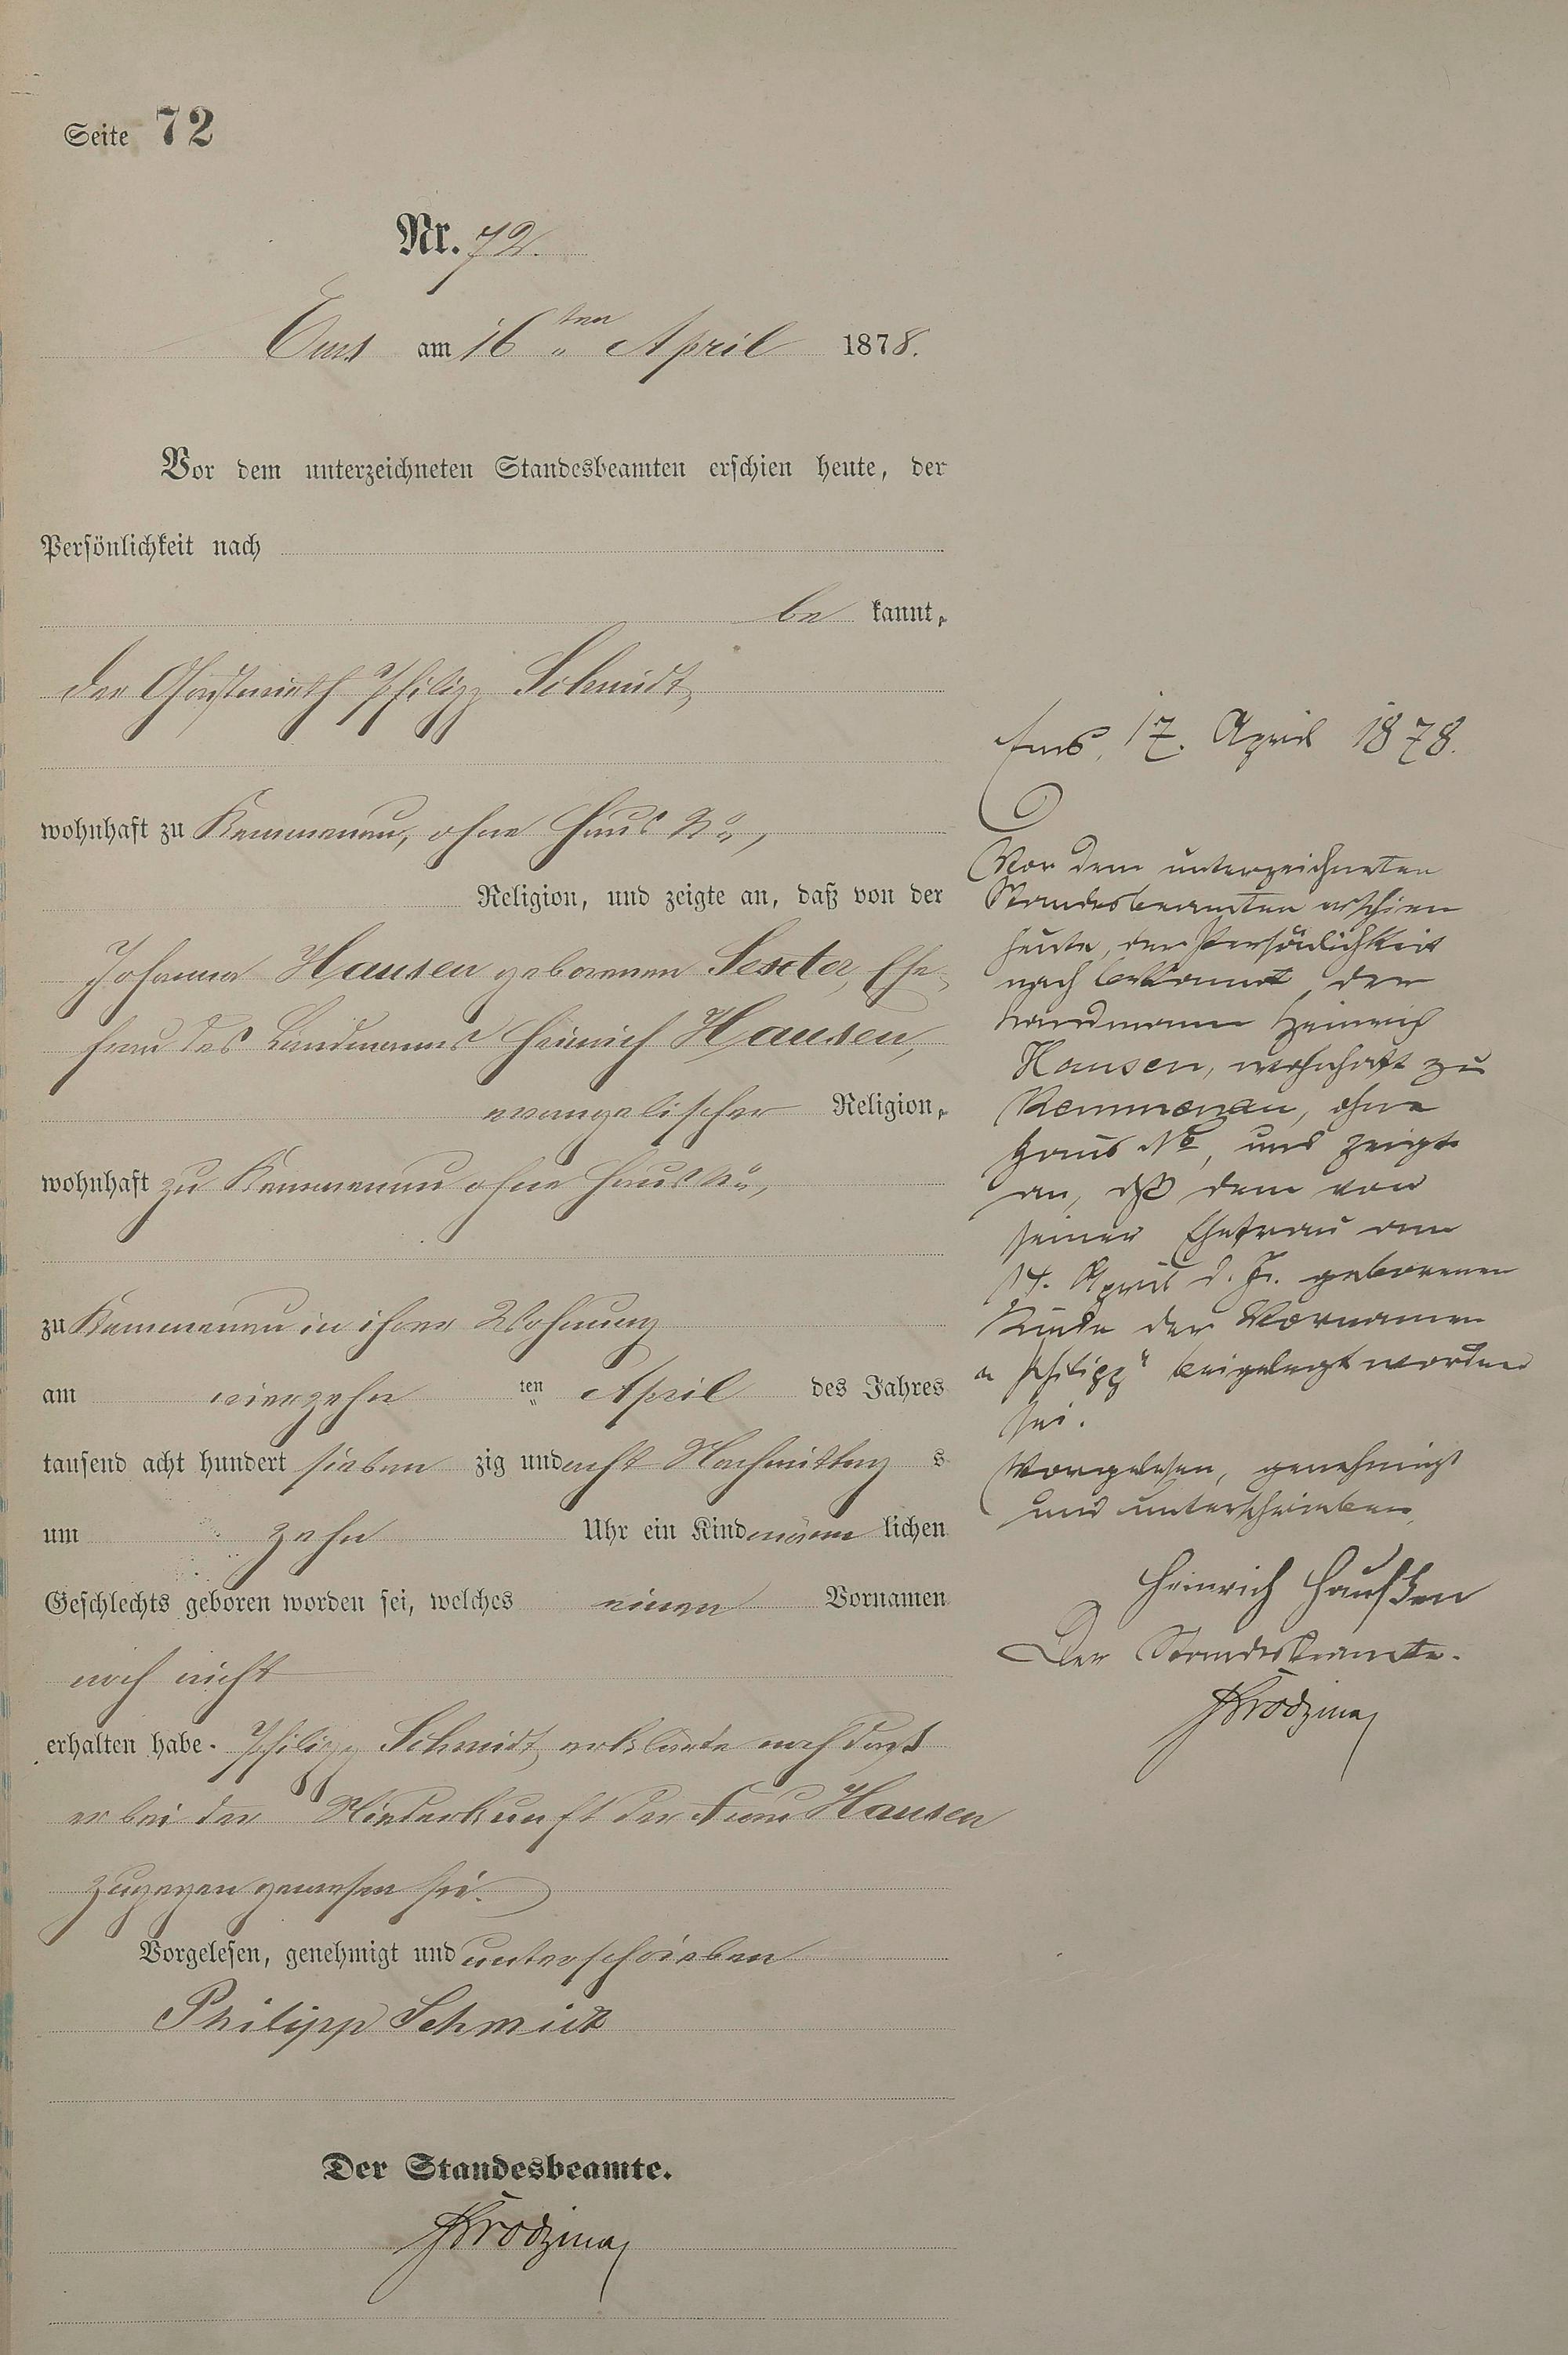 Seite 72
Nr. 72.
Ems am 16 ten April 1878.
Vor dem unterzeichneten Standesbeamten erschien heute, der
Persönlichkeit nach
be kannt,
der Gastwirth Philipp Schmidt,
wohnhaft zu Kemmenau, ohne Haus No,
Religion, und zeigte an, daß von der
Johanna Hausen geborenen Sexter, Ehe-
frau des Landmanns Heinrich Hausen,
evangelischer Religion,
wohnhaft zu Kemmenau ohne Haus No,
zu Kemmenau in ihrer Wohnung
am vierzehn ten April des Jahres
tausend acht hundert sieben zig und acht Nachmittag s
um zehn Uhr ein Kind männ lichen
Geschlechts geboren worden sei, welches einen Vornamen
noch nicht
erhalten habe. Philipp Schmidt erklärte noch daß
er bei der Niederkunft der Frau Hausen
zugegen gewesen sei.
Vorgelesen, genehmigt und unterschrieben
Philipp Schmidt
Der Standesbeamte.
Ems, 17. April 1878.
Vor dem unterzeichneten
Standesbeamten erschien
heute, der Persönlichkeit
nach bekannt, der
Landmann Heinrich
Hausen, wohnhaft zu
Kemmenau, ohne
Haus No, und zeigte
an, daß dem von
seiner Ehefrau am
14. April d. Js. geborenen
Kinde der Vornamen
"Philipp" beigelegt worden
sei.
Vorgelesen, genehmigt
und unterschrieben
Heinrich Haußen
Der Standesbeamte.